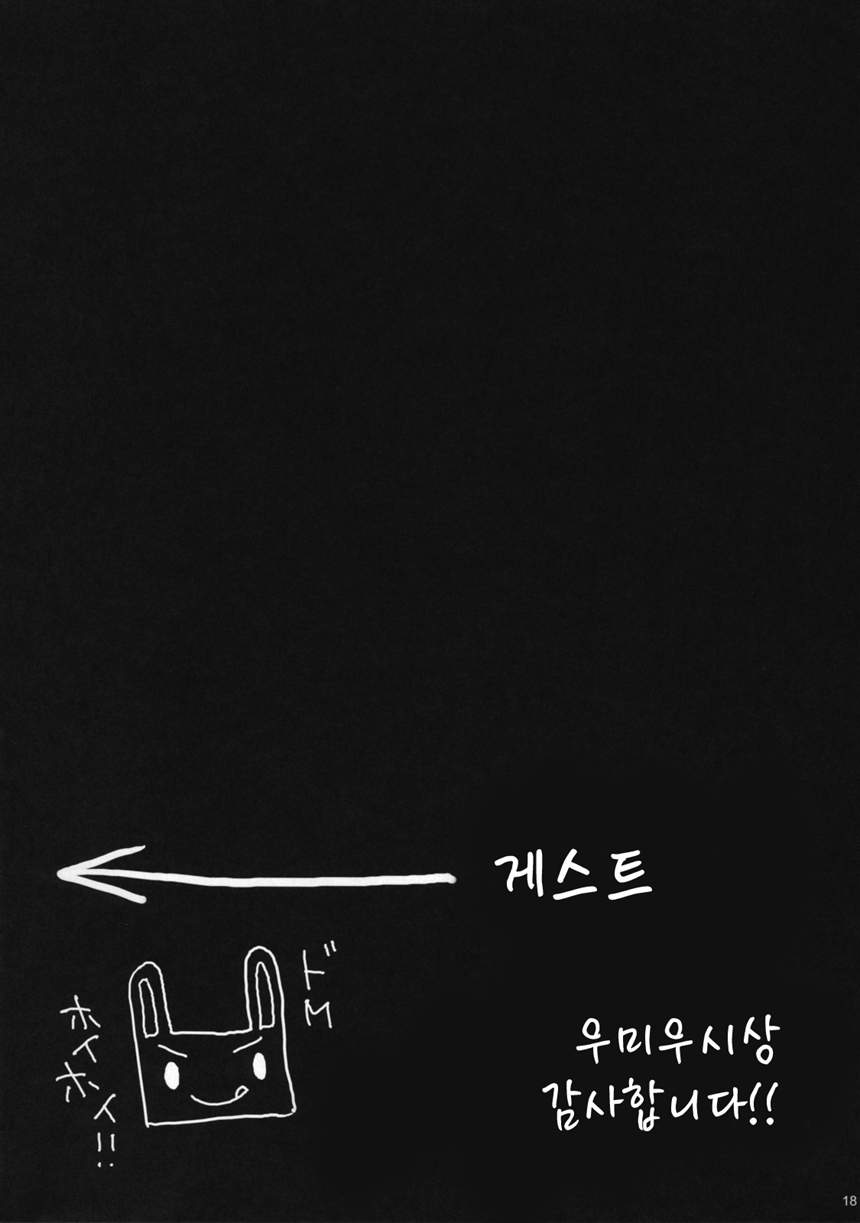 게스트
ドM
ホイホイ!!
우미우시상
감사합니다!!
18